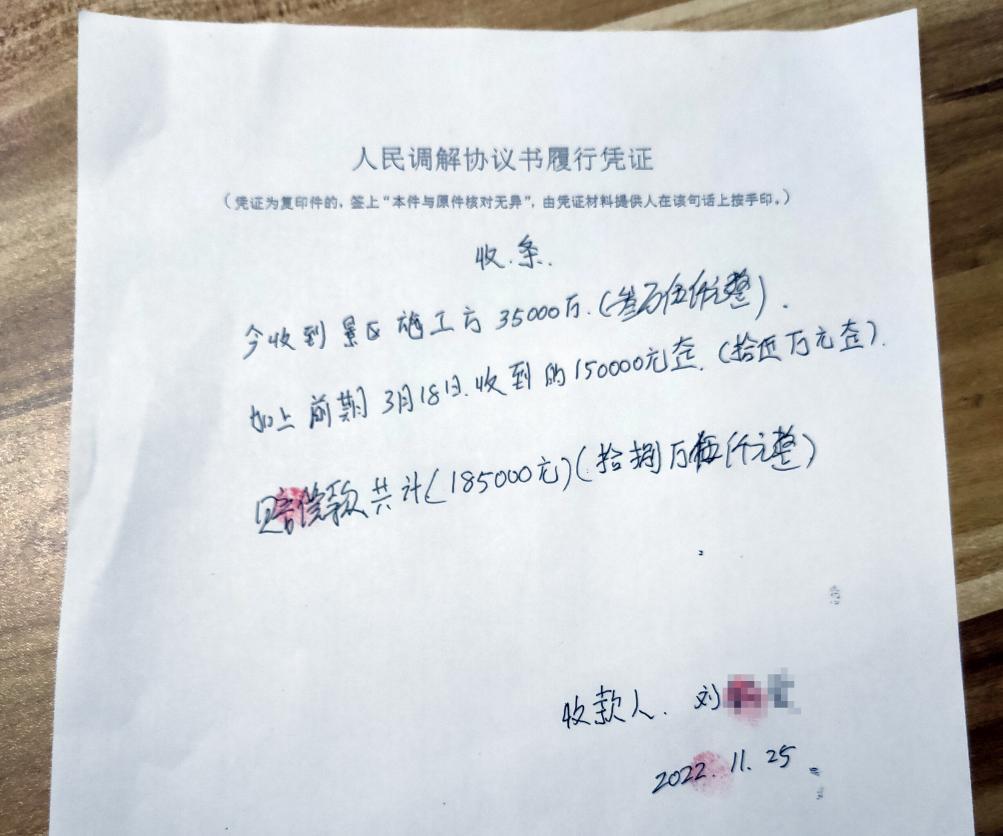 人民调解协议书履行凭证
（凭证为复印件的，签上“本件与原件核对无异”，由凭证材料提供人在该句话上按手印。）
收条.
今收到景区施工方35000万.(叁万伍仟元整).
加上前期3月18日.收到的150000元整.(拾伍万元整).
赔偿款共计(185000元)(拾捌万伍仟元整)
收款人.刘
2022.11.25